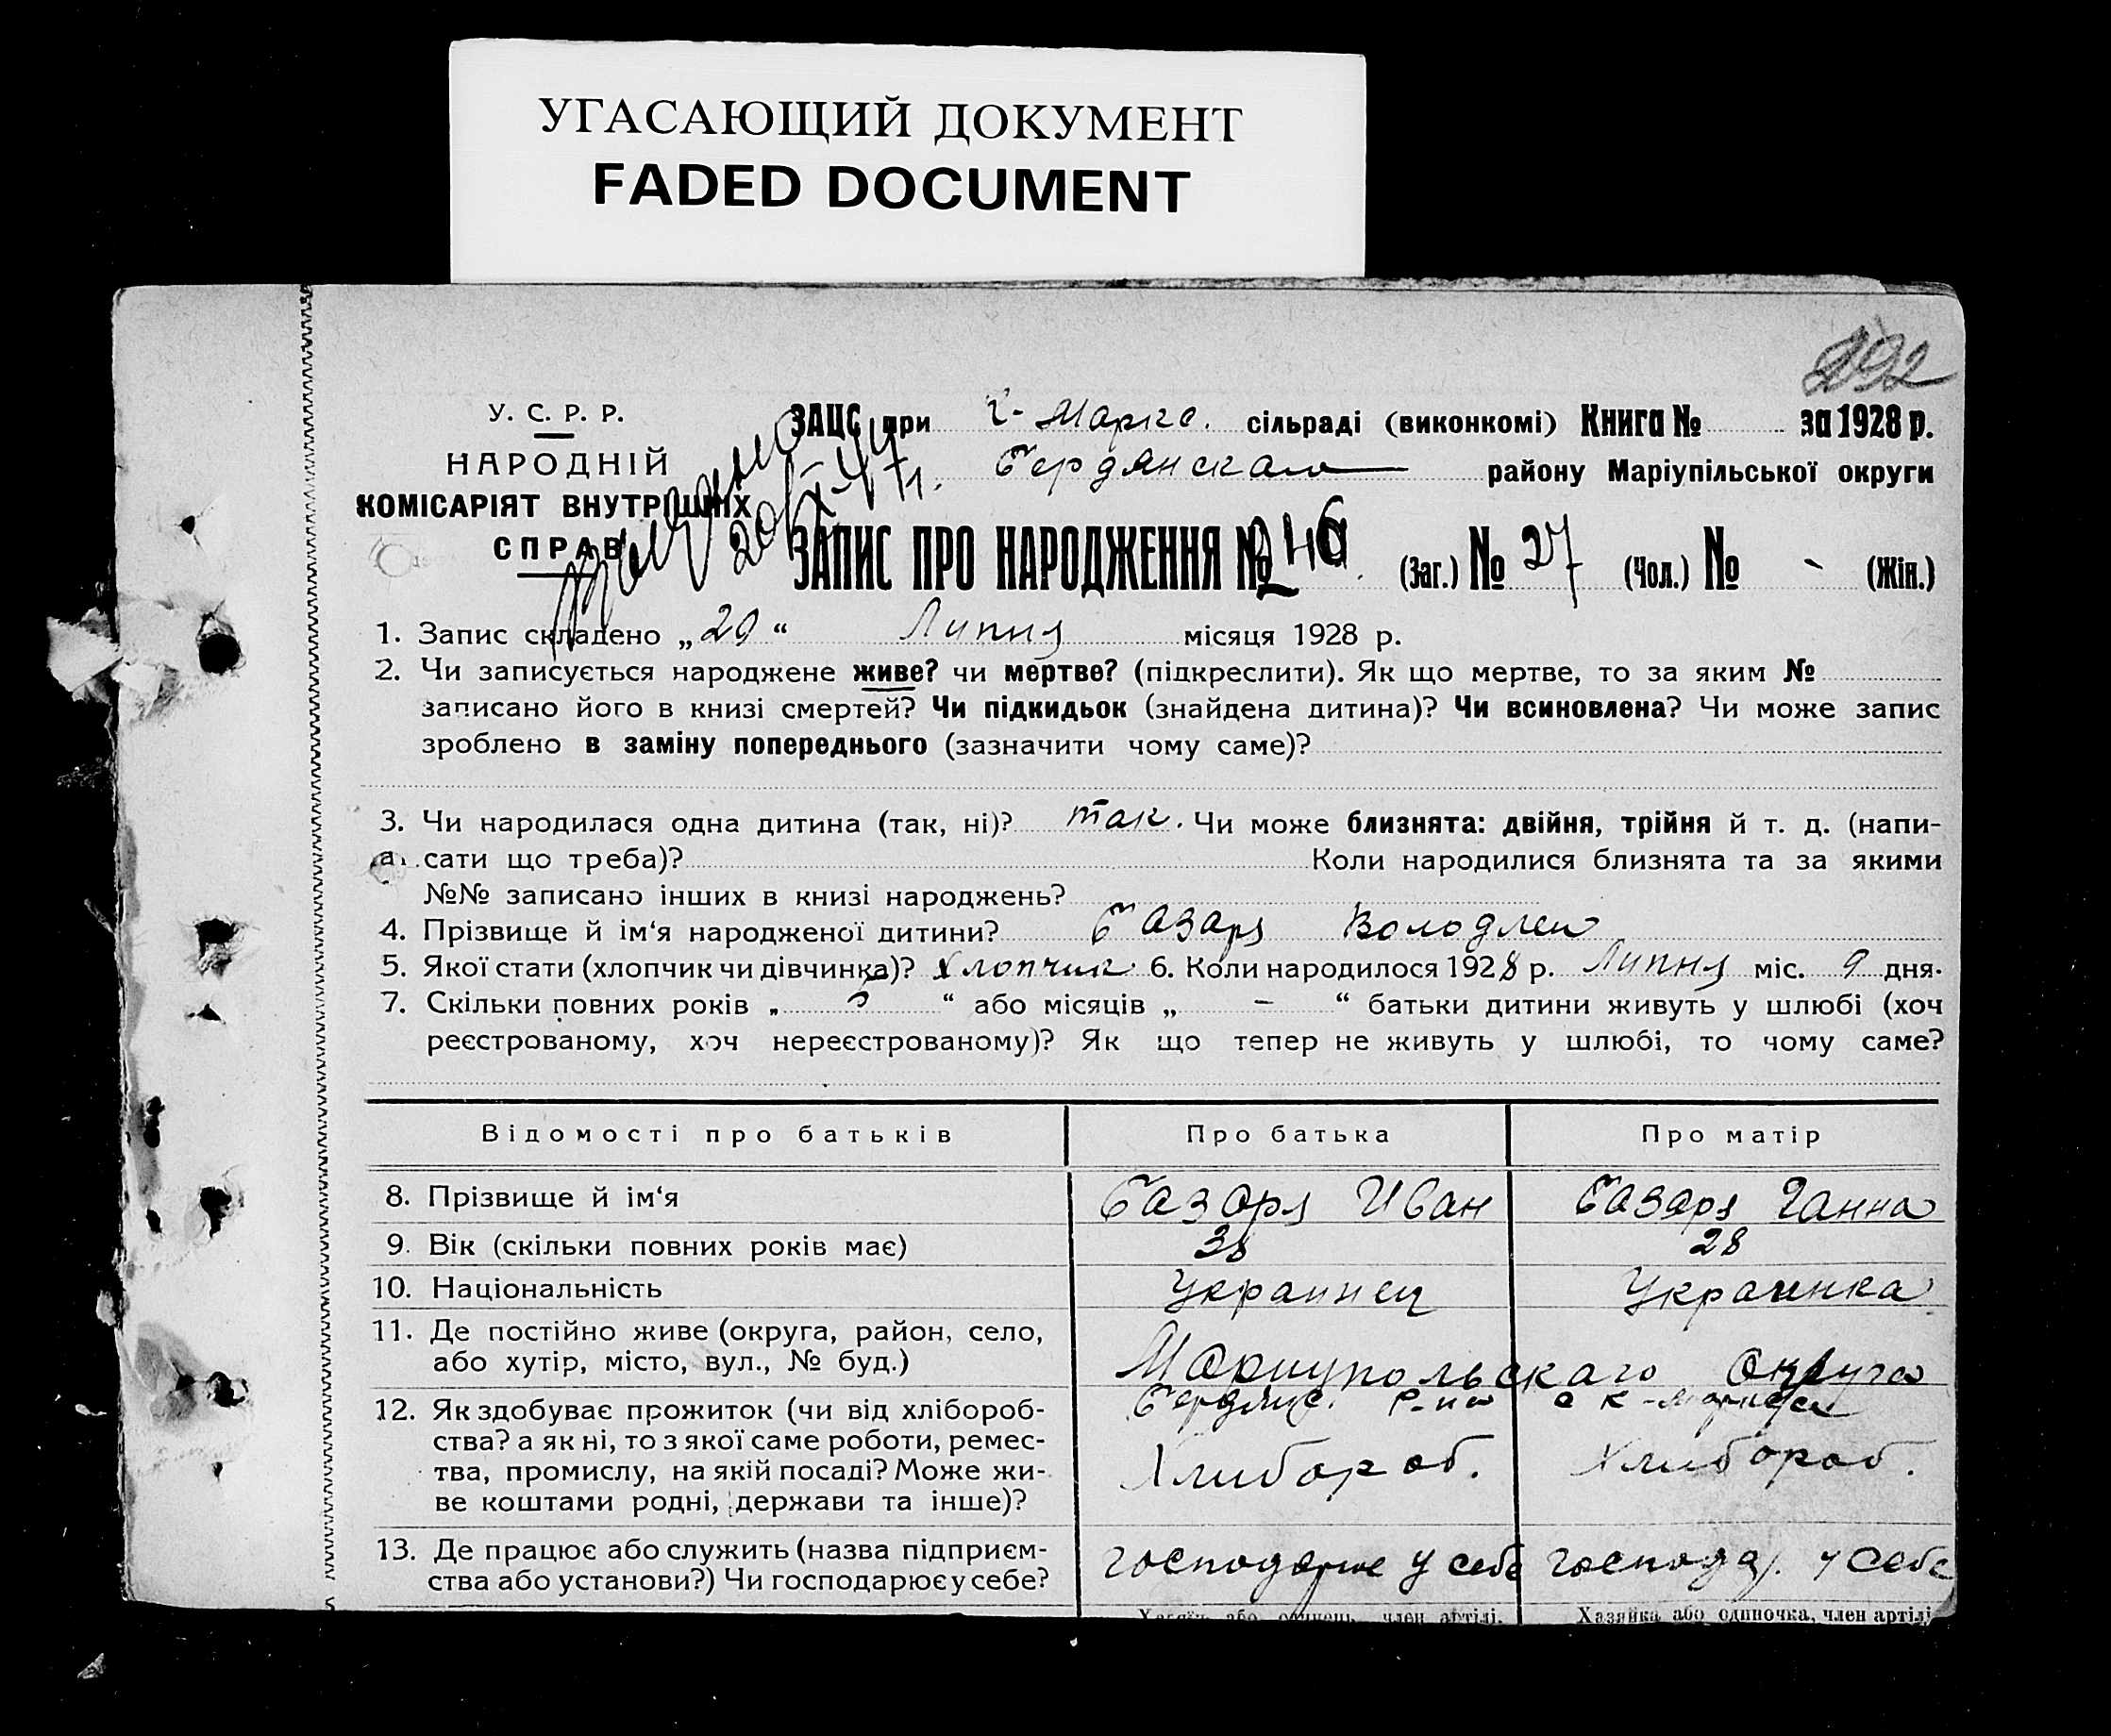 УГАСАЮЩИЙ ДОКУМЕНТ
FADED DOCUMENT
292
У. С. Р. Р.
НАРОДНІЙ
КОМІСАРІЯТ ВНУТРІШНІХ
СПРАВ
ЗАЦС при сільраді (виконкомі) Книга № за 1928 р.
Бердянскаго району Маріупільської округи
ЗАПИС ПРО НАРОДЖЕННЯ № (Заг.) № 27 (Чол.) № - (Жін.)
1. Запис складено „29“ Липня місяця 1928 р.
2. Чи записується народжене живе? чи мертве? (підкреслити). Як що мертве, то за яким №
записано його в книзі смертей? Чи підкидьок (знайдена дитина)? Чи всиновлена? Чи може запис
зроблено в заміну попереднього (зазначити чому саме)?
3. Чи народилася одна дитина (так, ні)? так. Чи може близнята: двійня, трійня й т. д. (напи-
сати що треба)? Коли народилися близнята та за якими
№№ записано інших в книзі народжень?
4. Прізвище й ім‘я народженої дитини? Базаря
5. Якої стати (хлопчик чи дівчинка)? Хлопчик 6. Коли народилось 1928 р. Липня міс. 9 дня.
7. Скільки повних років „ “ або місяців „ - “ батьки дитини живуть у шлюбі (хоч
реєстрованому, хоч нереєстрованому)? Як що тепер не живуть у шлюбі, то чому саме?
Відомості про батьків Про батька Про матір
8. Прізвище й ім‘я Базаря Иван Базаря Ганна
9. Вік (скільки повних років має) 38 28
10. Національність Украинец Украинка
11. Де постійно живе (округа, район, село,
або хутір, місто, вул., № буд.) Мариупольскаго Округа
12. Як здобуває прожиток (чи від хлібороб-
ства? а як ні, то з якої саме роботи, ремес-
тва, промислу, на якій посаді? Може жи- Хлибороб. Хлибороб.
ве коштами родні, держави та інше)?
13. Де працює або служить (назва підприєм- господарює у себе господар. у себе
ства або установи?) Чи господарює у себе?
Хазяїн або одинець, член артілі. Хазяйка або одиночка, член артілі